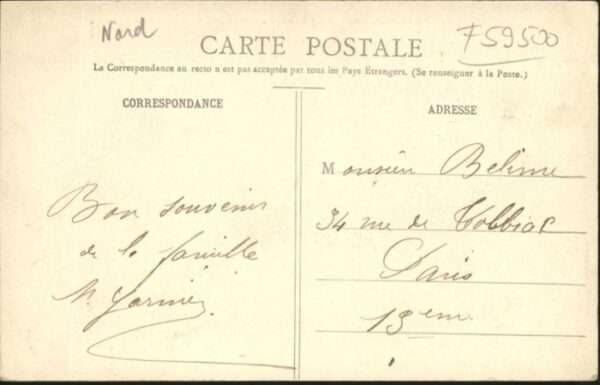 Nord
F59500
CARTE POSTALE
La Correspondance au recto n'est pas acceptée par tous les Pays Etrangers. (Se renseigner à la Poste.)
CORRESPONDANCE
ADRESSE
Bon souvenir
de la famille
M.
Monsieur Belime
34 rue de Tolbiac
Paris
13eme